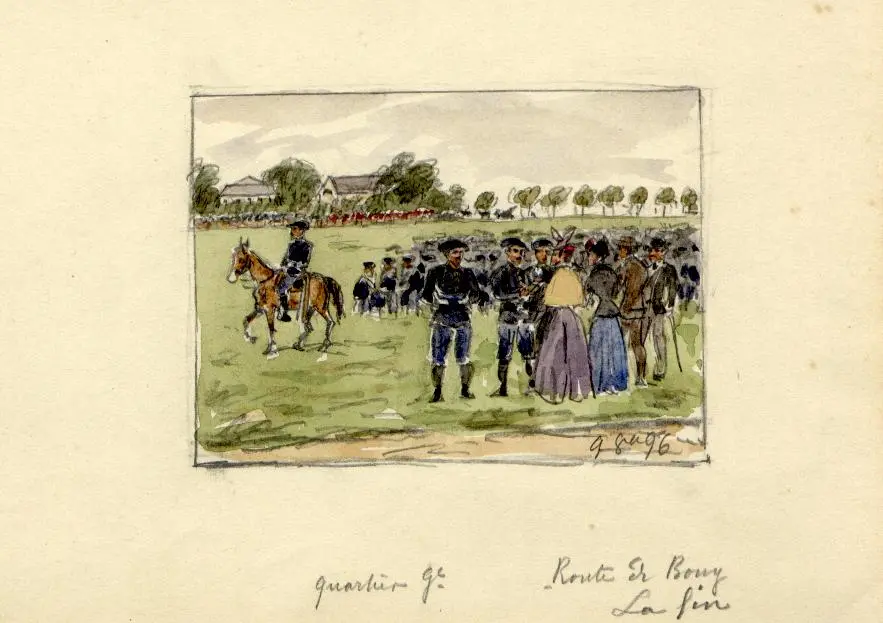 9 8bre 96
Quartier Gl
Route de Bouy
La fin